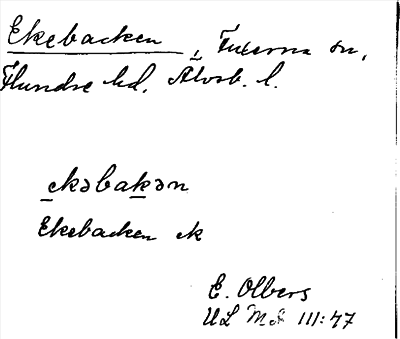 Ekebacken, Fuxerna sn,
Flundre hd, Älvsb. l.
ekəbakən
Ekebacken ek
E. Olbers
ULMA III:47